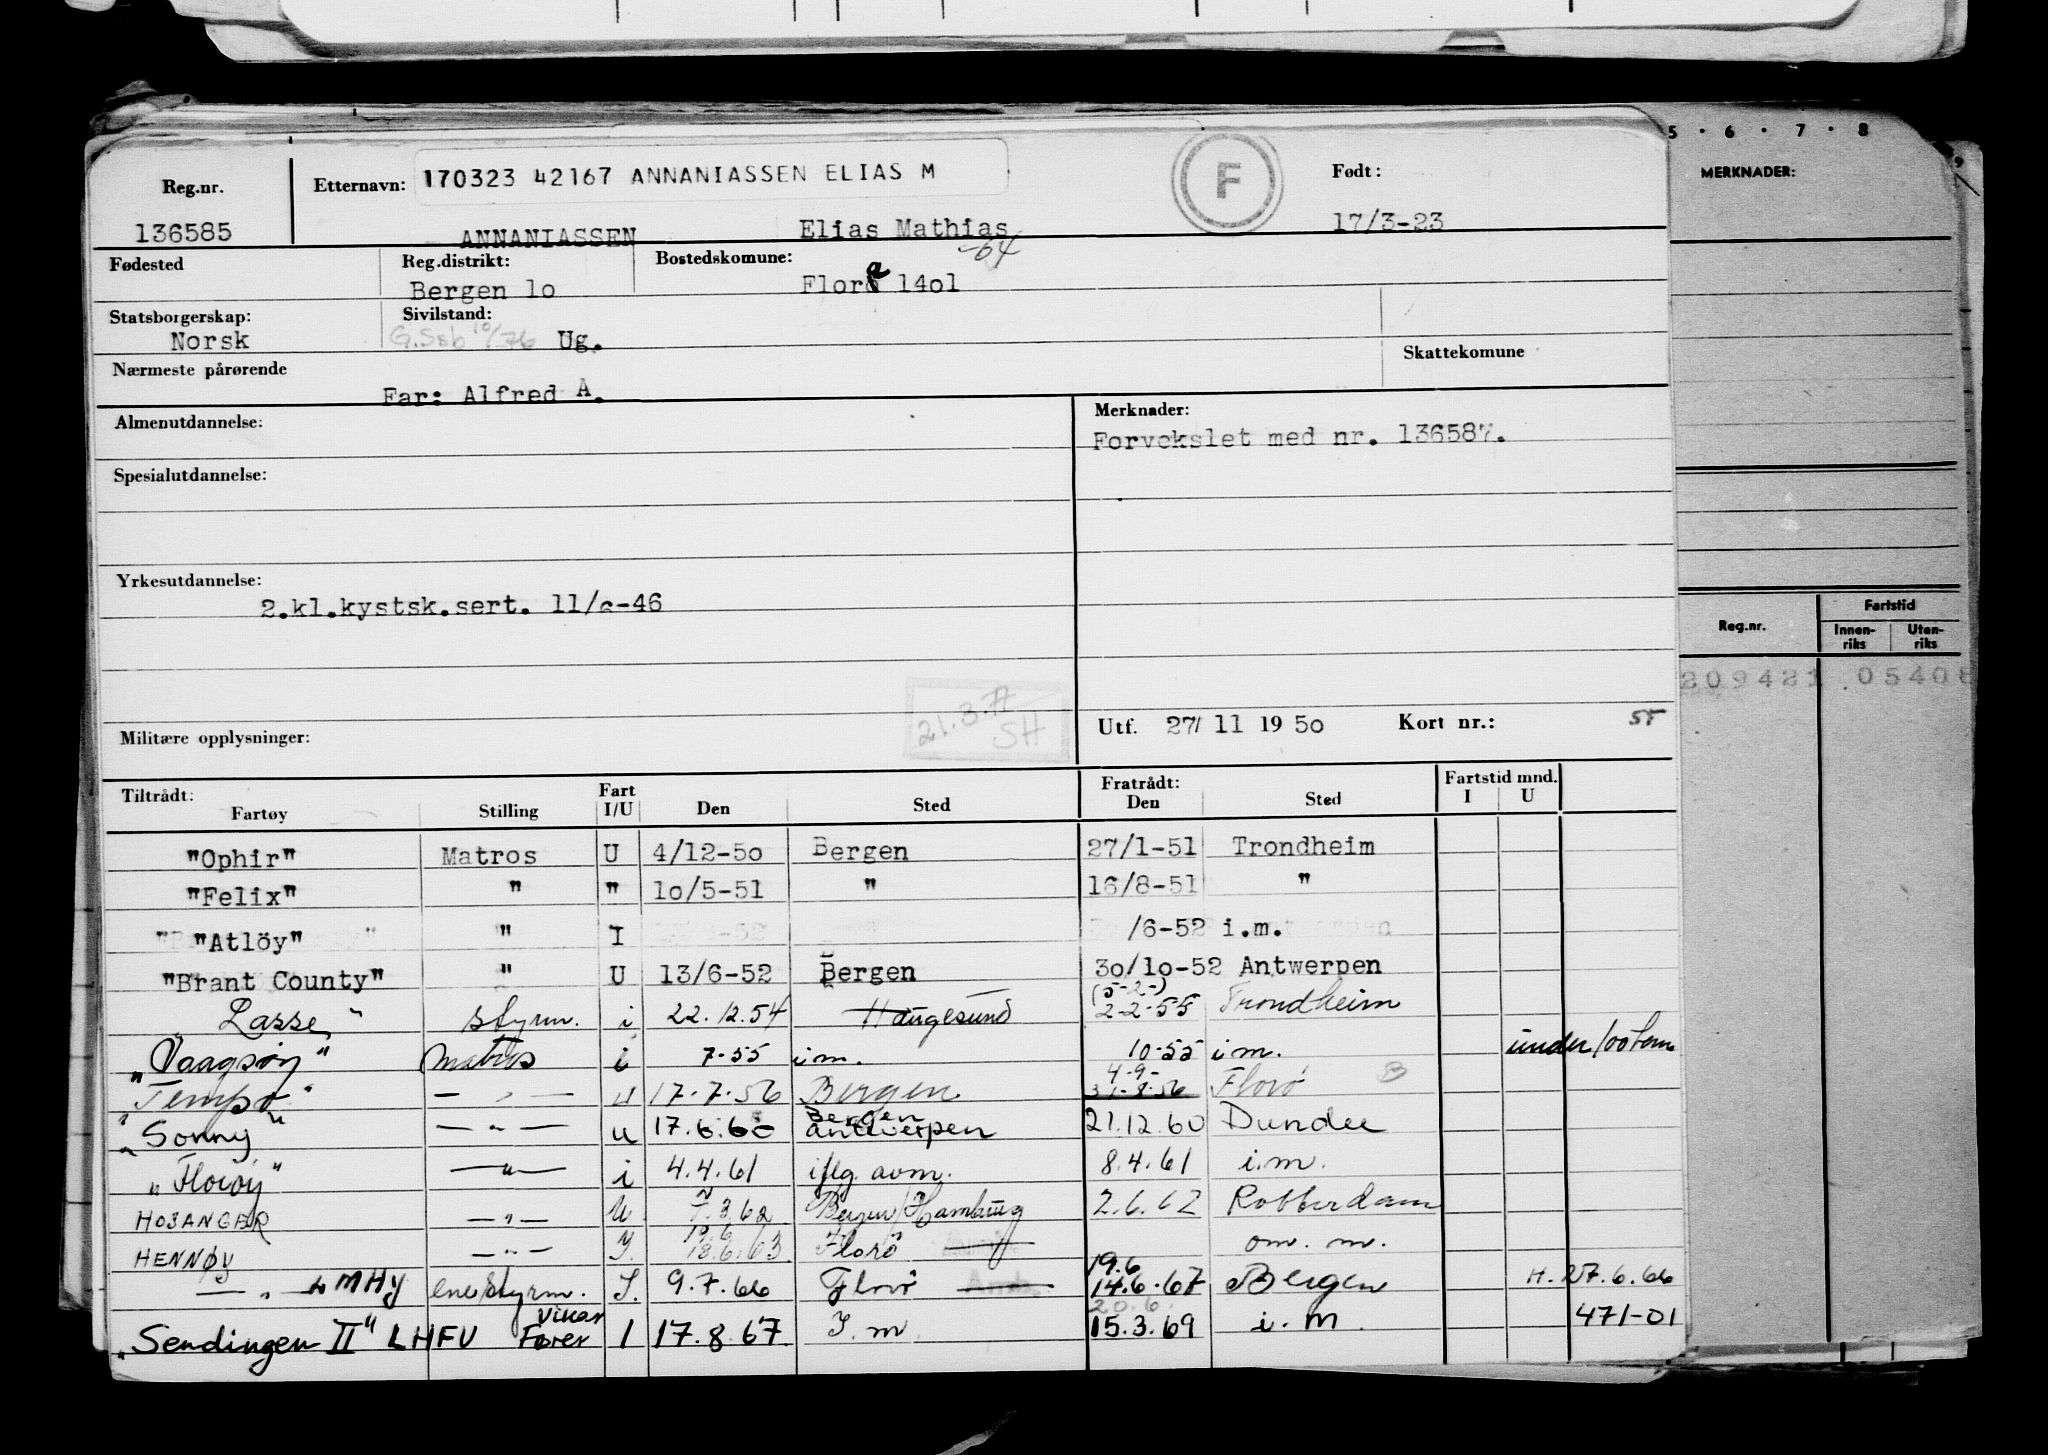 5 • 6 • 7 • 8
MERKNADER:
Reg.nr. Etternavn: 170323 42167 ANNANIASSEN ELIAS M F Født:
136585 ANNANIASSEN Elias Mathias 17/3-23
-64
Fødested Reg.distrikt: Bostedskomune:
Bergen 1o Flora 14o1
Statsborgerskap: Sivilstand:
Norsk G.Ssb 10/76 Ug.
Skattekomune
Nærmeste pårørende
Far: Alfred A.
Almenutdannelse: Merknader:
Forvekslet med nr. 136587.
Spesialutdannelse:
Yrkesutdannelse:
2.kl.kystsk.sert. 11/ -46
Reg.nr. Fartstid
Innen-riks Uten-riks
209421 0540
21.3.77
SH
Militære opplysninger: Utf. 27/ 11 19 5o Kort nr.: 55
Tiltrådt: Fart Fratrådt: Fartstid mnd.
Fartøy Stilling I/U Den Sted Den Sted I U
"Ophir" Matros U 4/12-5o Bergen 27/1-51 Trondheim
"Felix" " " 1o/5-51 " 16/8-51 "
"Atlöy" " I /6-52 i.m.
"Brant County" " U 13/6-52 Bergen 3o/1o-52 Antwerpen
(5-2-)
"Lasse" styrm. i 22.12.54 Haugesund 2-2-55 Trondheim
"Vaagsøy" Matros i 7-55 im. 10-55 i m. under 100 tonn
4-9-
"Tempo" — " — u 17.7.56 Bergen 31-8-56 Florø B
Bergen
"Sonny" — " — u 17.6.60 Antwerpen 21.12.60 Dundee
"Florøy" — " — i 4.4.61 iflg. avm. 8.4.61 i.m.
HOSANGER — " — U .3.62 Bergen/Hamburg 2.6.62 Rotterdam
HENNØY — " — I. 18.6.63 Florø om. m.
19.6
— " — LMHY enestyrm. I. 9.7.66 Florø 14.6.67 Bergen H. 27.6.66
20.6.
Vikar
"Sendingen II" LHFU Fører I 17.8.67 I.m. 15.3.69 i.m. 471-01